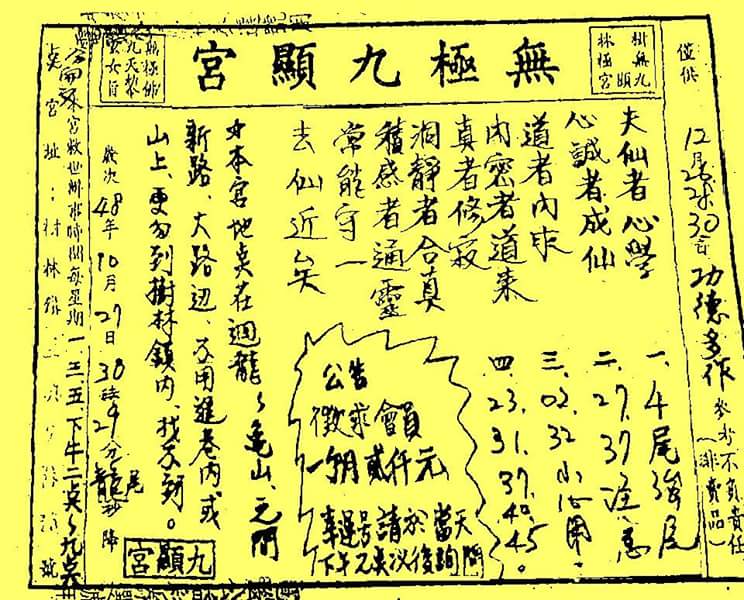 無極九顯宮
樹無九
林極顯宮
無極師
九天
玄女
僅供
12月28 30 功德多作 參考不負責任
(非賣品)
夫仙者心學
心誠者成仙
道者內求
內密者道來
真者修寂
洞靜者合真
積感者通靈
常能守一
去仙近矣
一.4尾強尾
二.27.37注意
三.02.32小心用
四.23.31.37.40.45。
公告
徵求會員
一個月貳仟元
幸運号請於當天
下午元點以後詢問
本宮地點在迴龍、龜山、之間
新路、大路边、不用進巷內、或
山上、更勿到樹林鎮內、找不到。
九顯宮
歲次48年10月27日30時29分龍秒陣
尾
宮救世辦事時間每星期一、三、五、下午二点~九点
宮址:樹林鎮
號